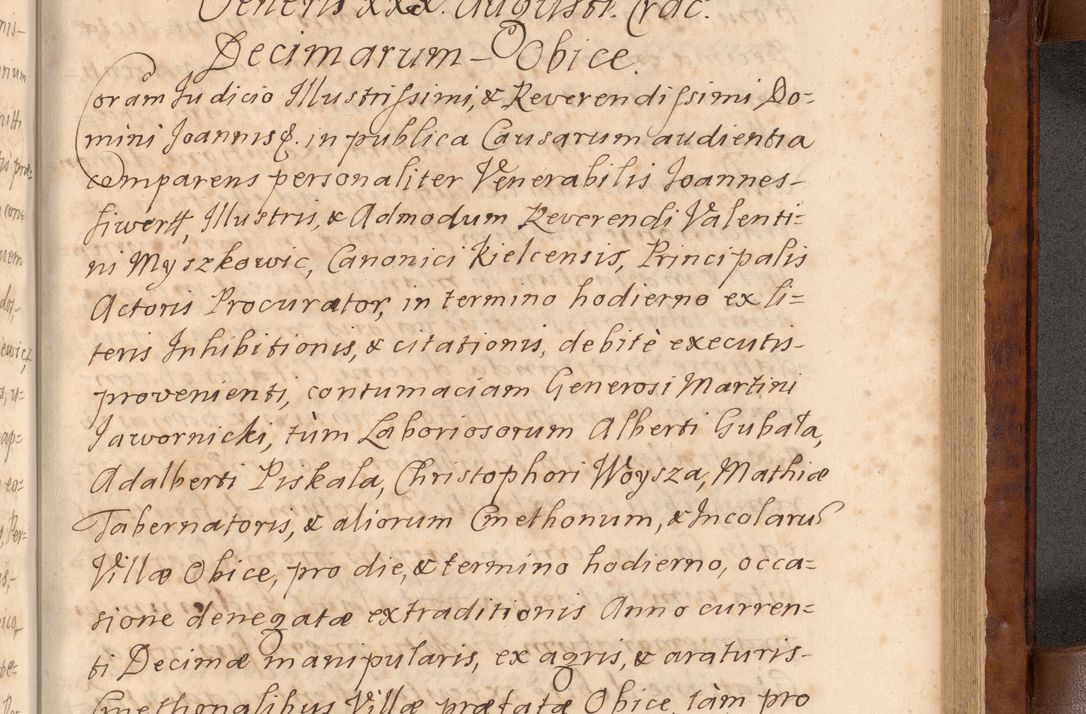 Veneris xxx. Augusti. Crac.
Decimarum - Obice.
Coram Judicio Illustrissimi, & Reverendissimi Do=
mini Joannis &. in publica Causarum audientia
comparens personaliter Venerabilis Joannes-
Siwertt, Illustris, & Admodum Reverendi Valenti=
ni Myszkowic, Canonici Kielcensis, Principalis
Actoris Procurator, in termino hodierno ex li=
teris Inhibitionis, & citationis, debitè executis-
provenienti, contumaciam Generosi Martini
Jawornicki, tùm Laboriosorum Alberti Gubała,
Adalberti Piskala, Christophori Woysza, Mathiæ
Tabernatoris, & aliorum Cmethonum, & Incolarum
Villæ Obice, pro die, & termino hodierno, occa=
sione denegatæ extraditionis Anno curren=
ti Decimæ manipularis, ex agris, & araturis-
Cmethonalibus Villæ prætatæ Obice, tàm pro